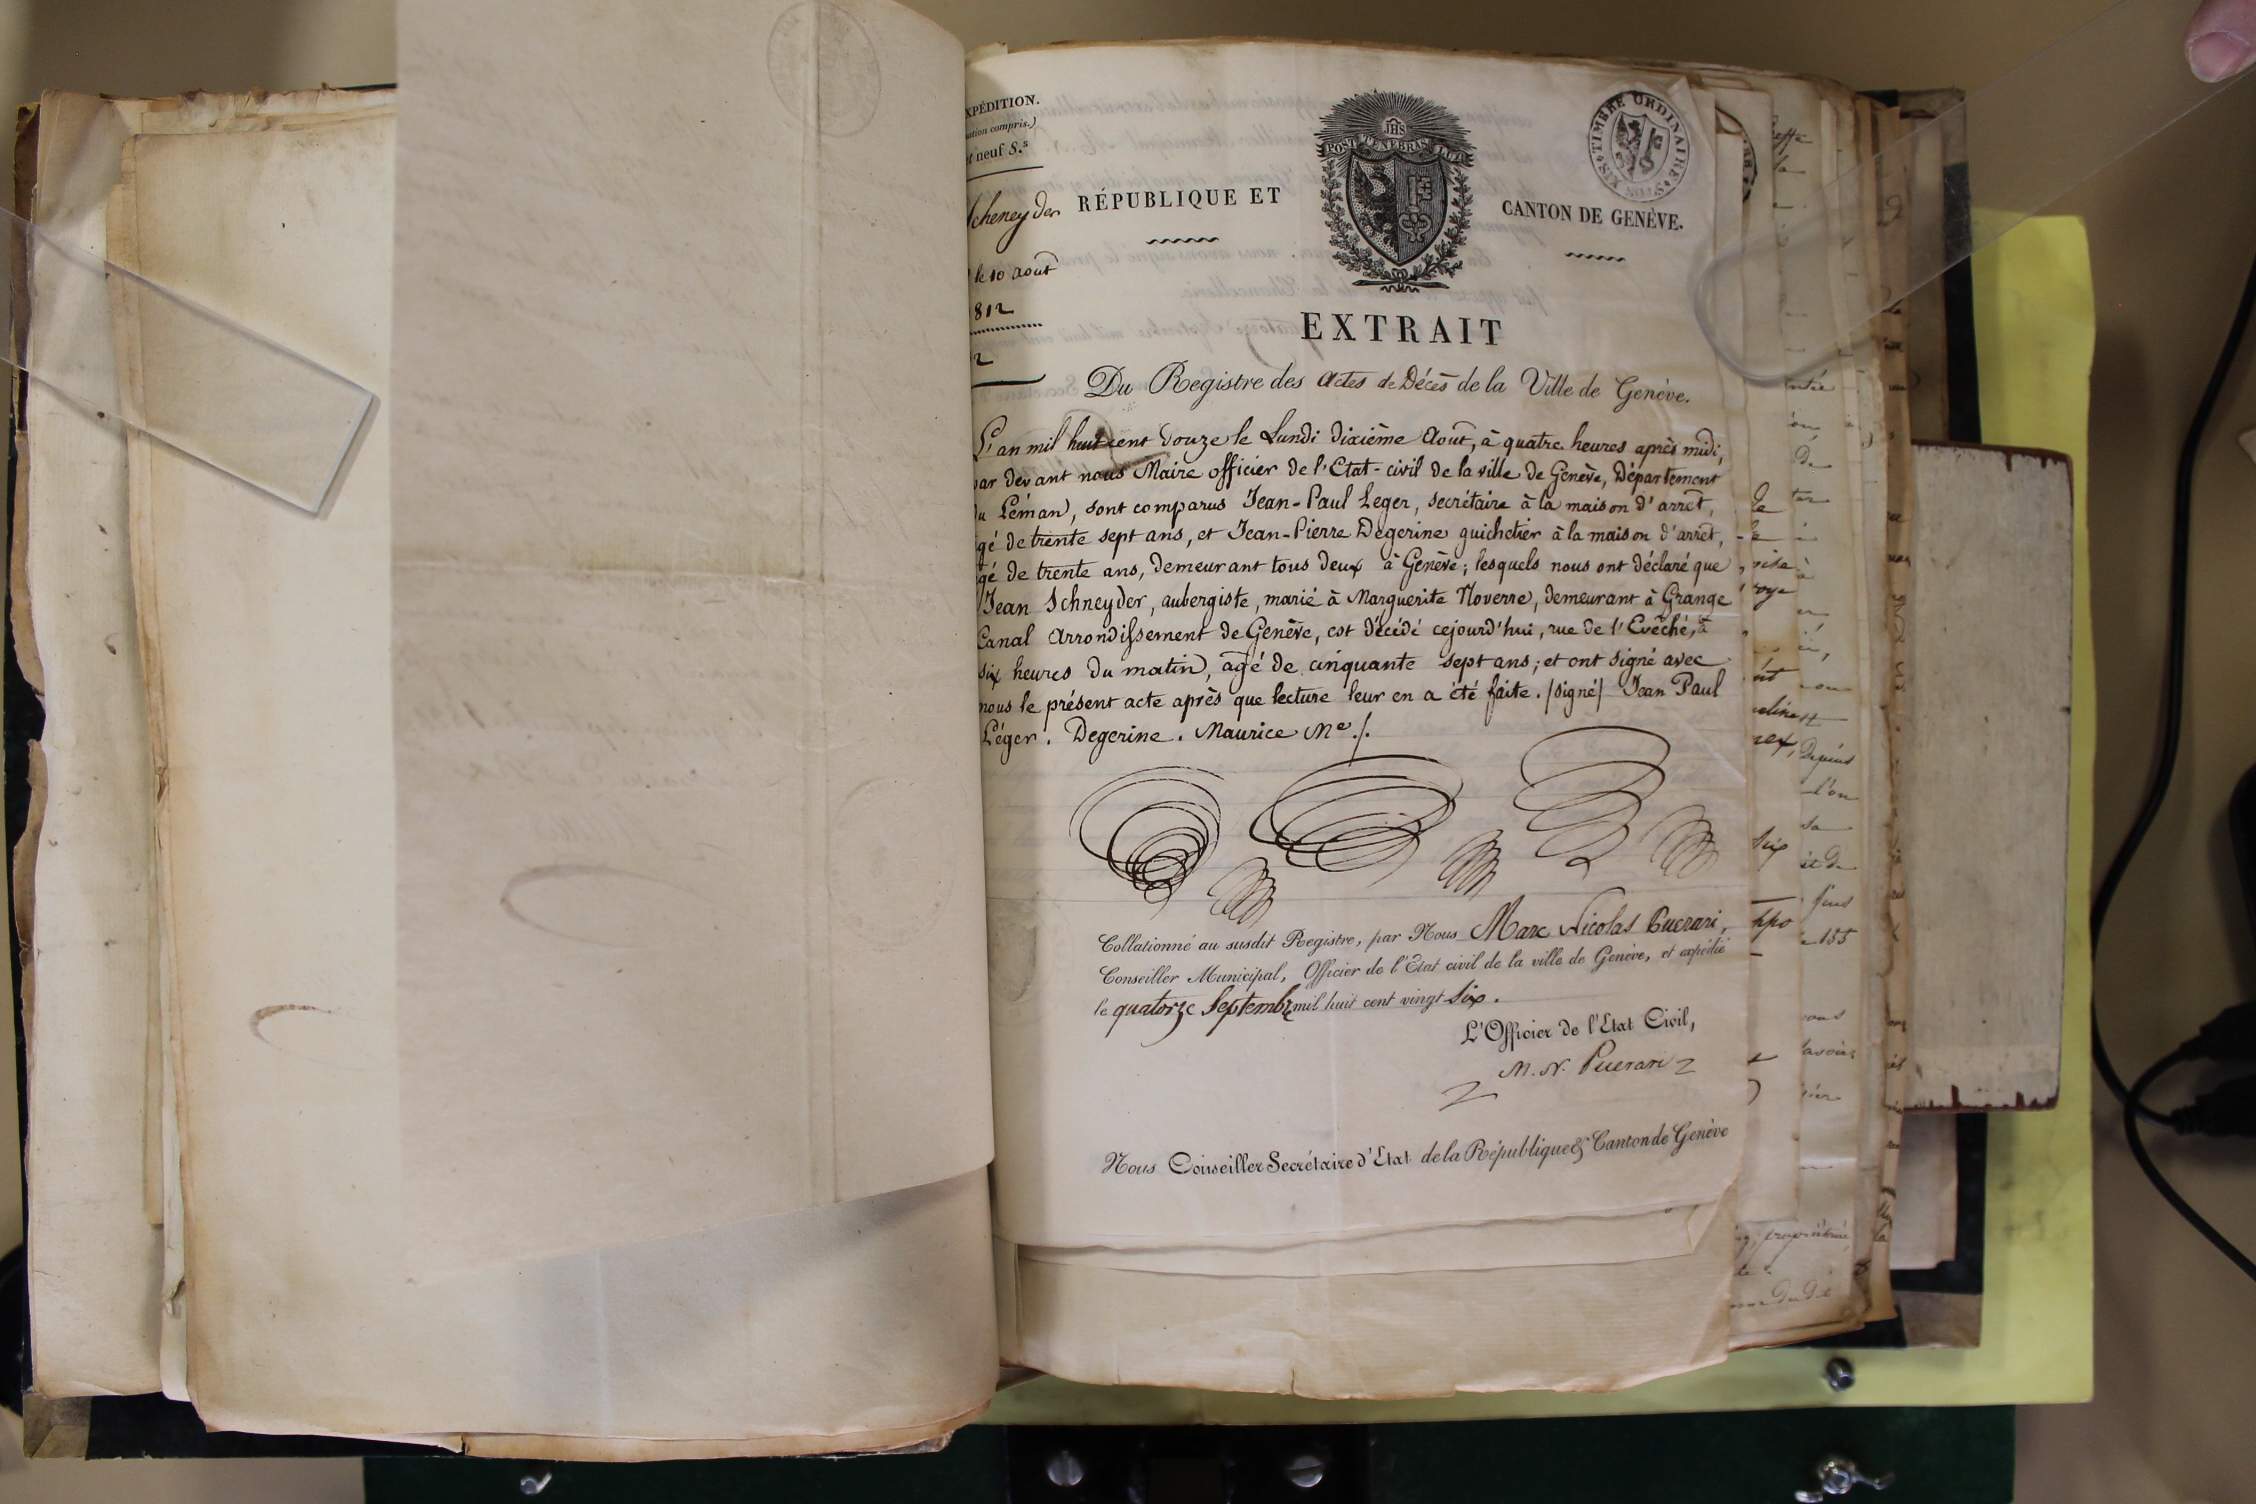 XPÉDITION.
ation compris.)
neuf S.s
cheneyder
le 10 aout
812
2
JHS
POST TENEBRAS LUX
RÉPUBLIQUE ET
CANTON DE GENÈVE.
TIMBRE ORDINAIRE
SIX SOLS
EXTRAIT
Du Registre des actes de Décès de la Ville de Genève.
L'an mil huit cent douze le Lundi dixième Aout, à quatre heures après midi,
par devant nous Maire officier de l'Etat-civil de la ville de Genève, Département
du Léman, sont comparus Jean-Paul Leger, secrétaire à la maison d'arrêt,
gé de trente sept ans, et Jean-Pierre Degerine guichetier à la maison d'arrêt,
gé de trente ans, demeurant tous deux à Genève; lesquels nous ont déclaré que
Jean Schneyder, aubergiste, marié à Marguerite Noverre, demeurant à Grange
Canal Arrondissement de Genève, est décédé cejourd'hui, rue de l'Evêché, à
six heures du matin, agé de cinquante sept ans; et ont signé avec
nous le présent acte après que lecture leur en a été faite. /signé/ Jean Paul
Léger. Degerine. Maurice Me./.
Collationné au susdit Registre, par Nous Marc Nicolas Puerari,
Conseiller Municipal, Officier de l'Etat civil de la ville de Genève, et expédié
le quatorze Septembre mil huit cent vingt six.
L'Officier de l'Etat Civil,
M. N. Puerari
Nous Conseiller Secrétaire d'Etat de la République & Canton de Genève